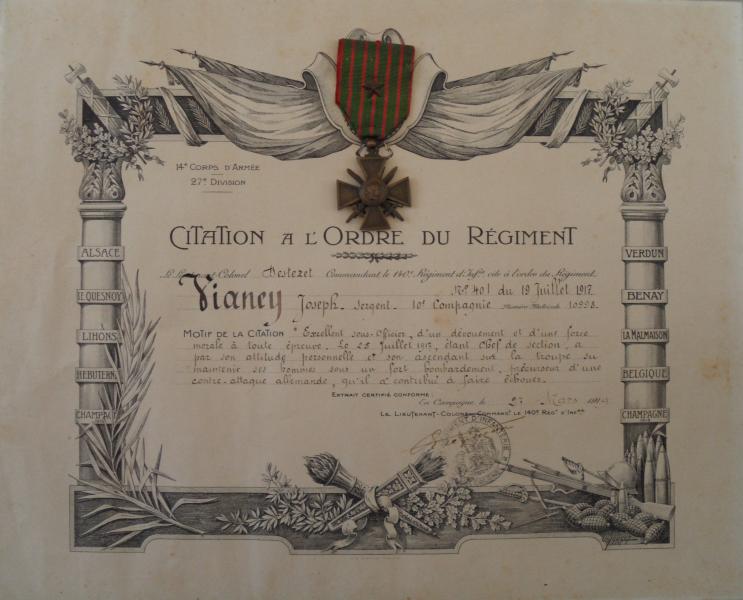 14e CORPS D'ARMÉE
27e DIVISION
CITATION A L'ORDRE DU RÉGIMENT
Le Lieutenant-Colonel Destezet Commandant le 140e Régiment d'Infie cite à l'ordre du Régiment.
No 401 du 19 Juillet 1917
Vianey Joseph - Sergent - 10e Compagnie Numéro Matricule 10998
MOTIF DE LA CITATION " Excellent sous-Officier, d'un dévouement et d'une force
morale à toute épreuve. Le 25 Juillet 1917, étant Chef de section, a
par son attitude personnelle et son ascendant sur la troupe su
maintenir ses hommes sous un fort bombardement, précurseur d'une
contre-attaque allemande, qu'il a contribué à faire échouer.
EXTRAIT CERTIFIÉ CONFORME:
En Campagne, le 27 Mars 1919
LE LIEUTENANT-COLONEL COMMANDt LE 140e RÉGt D'INFie
ALSACE
LE QUESNOY
LIHONS
HÉBUTERNE
CHAMPAGNE
VERDUN
BENAY
LA MALMAISON
BELGIQUE
CHAMPAGNE
D'INFANTERIE